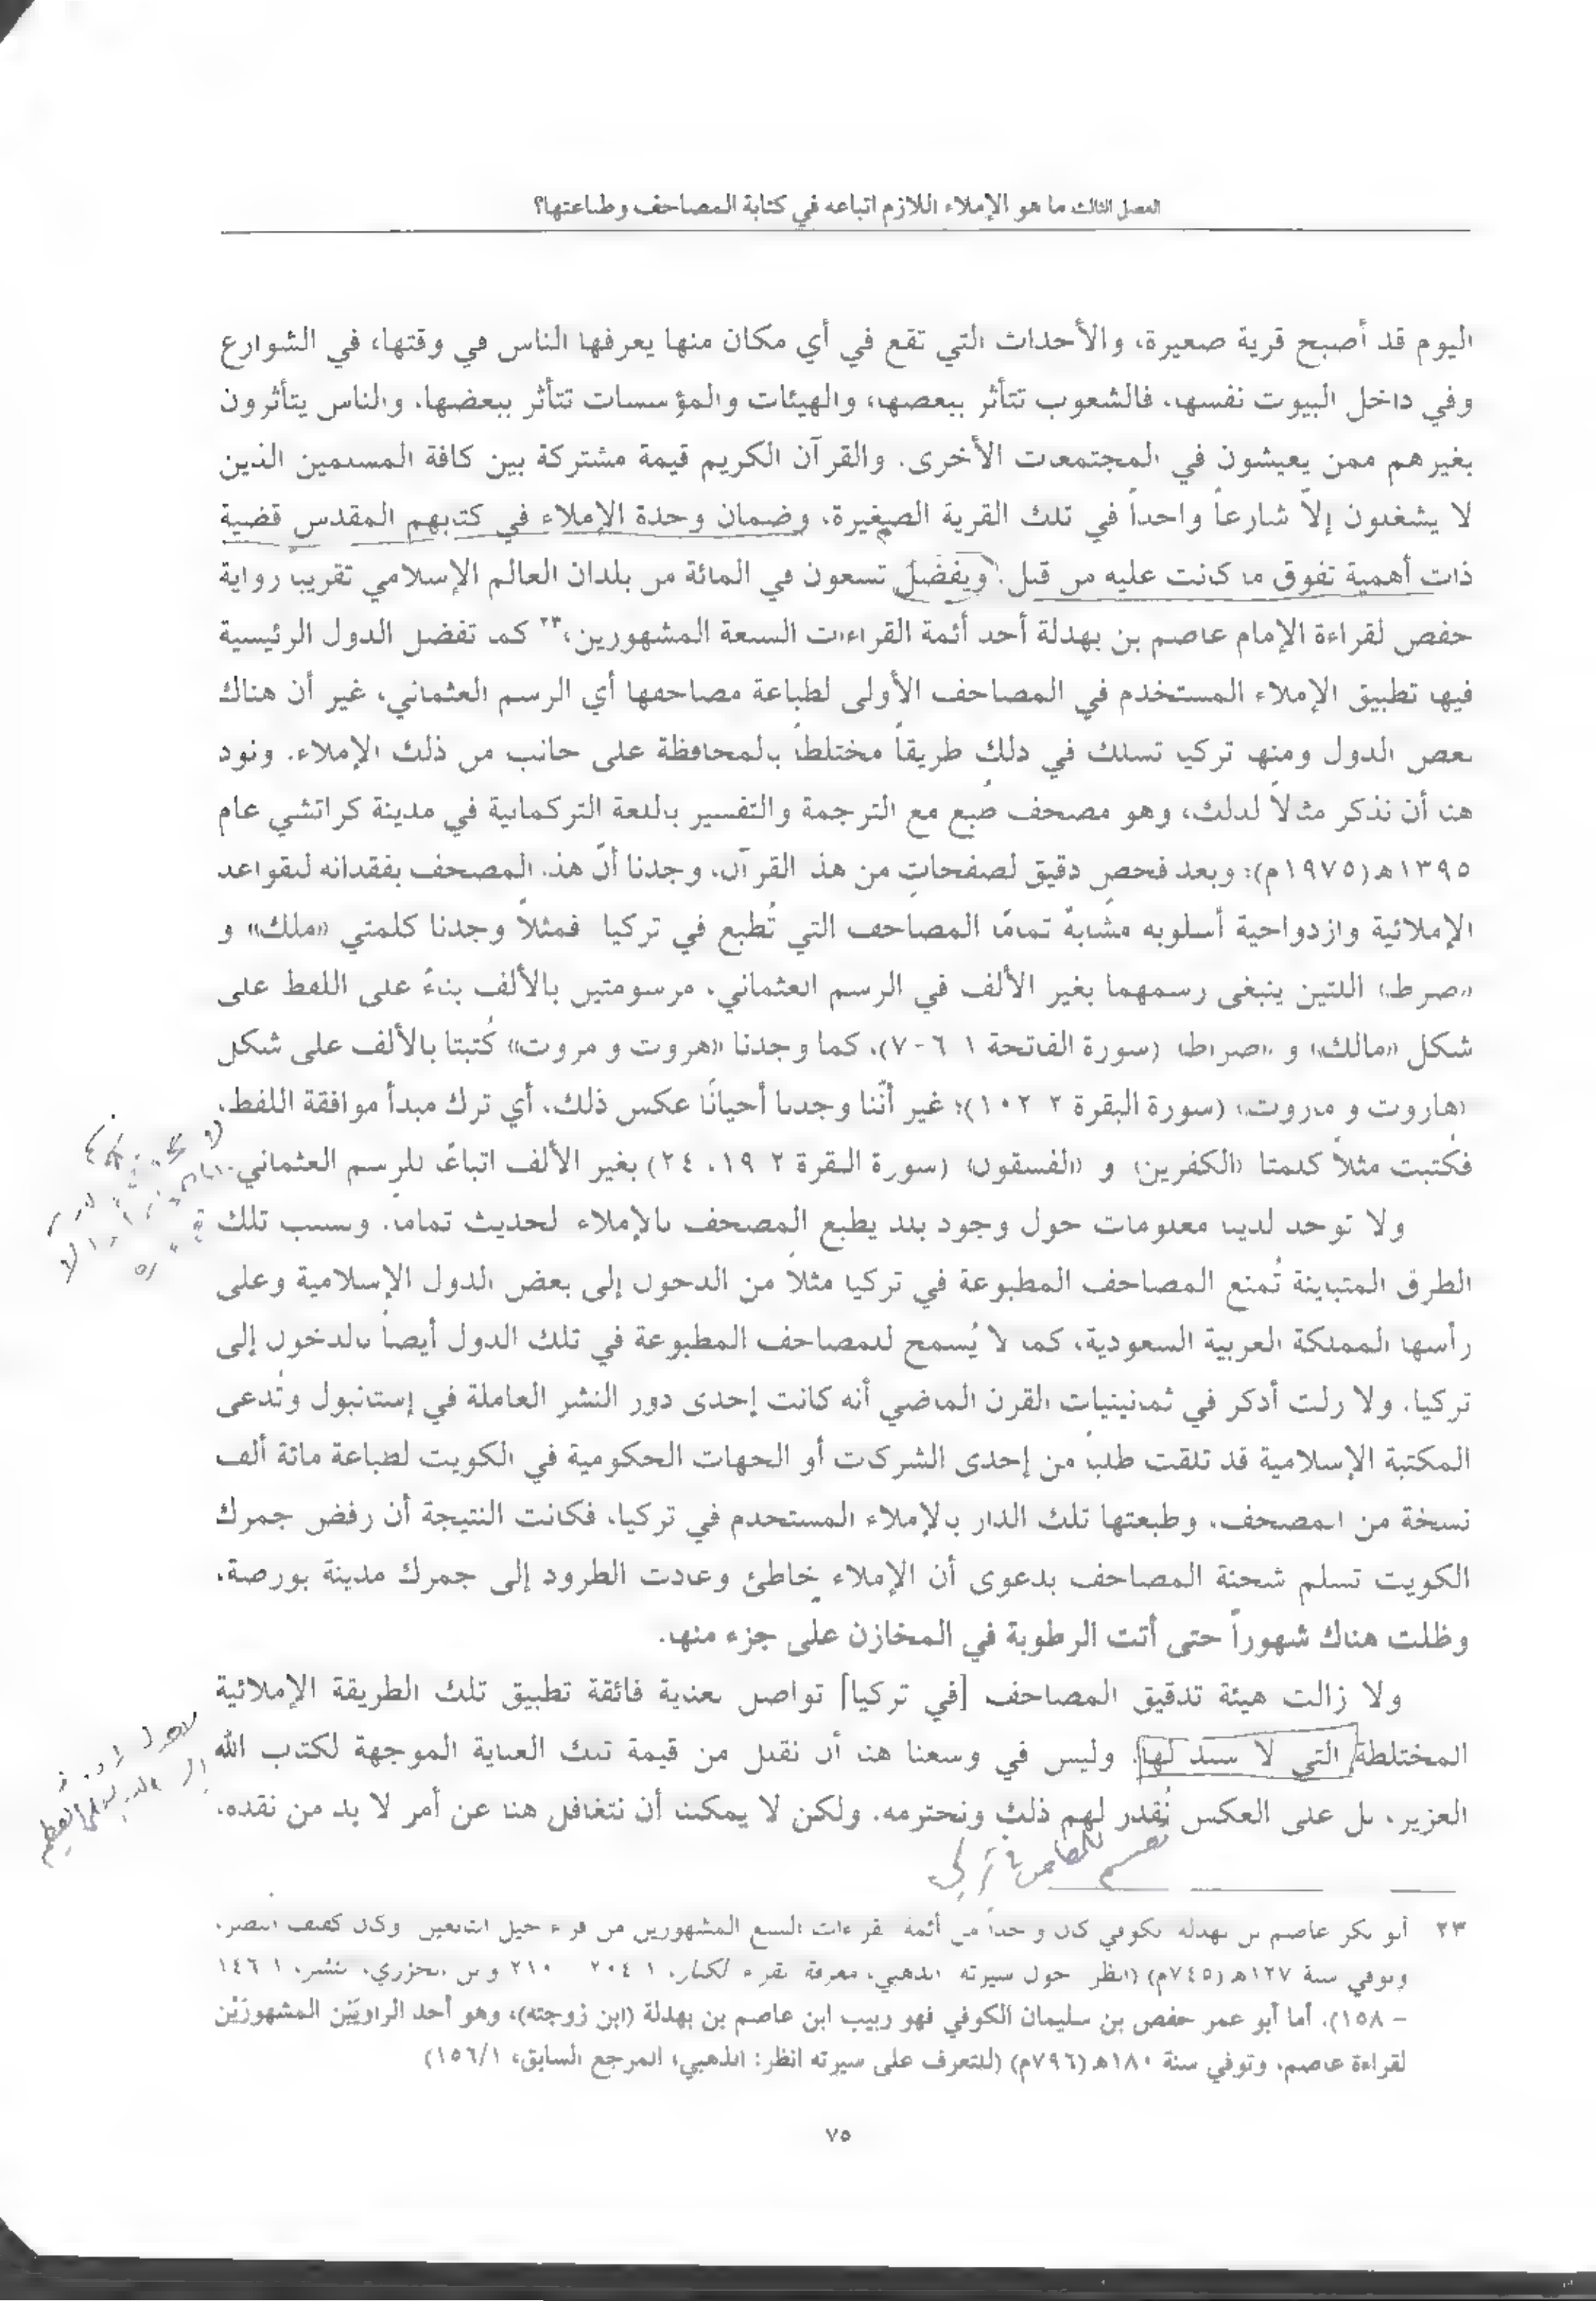 الفصل الثالث ما هو الإملاء اللازم اتباعه في كتابة المصاحف وطباعتها؟
اليوم قد أصبح قرية صغيرة، والأحداث التي تقع في أي مكان منها يعرفها الناس في وقتها، في الشوارع
وفي داخل البيوت نفسها. فالشعوب تتأثر ببعضها، والهيئات والمؤسسات تتأثر ببعضها. والناس يتأثرون
بغيرهم ممن يعيشون في المجتمعات الأخرى. والقرآن الكريم قيمة مشتركة بين كافة المسلمين الذين
لا يشغلون إلاّ شارعاً واحداً في تلك القرية الصغيرة، وضمان وحدة الإملاء في كتابهم المقدس قضية
ذات أهمية تفوق ما كانت عليه من قبل. ويفضل تسعون في المائة من بلدان العالم الإسلامي تقريبا رواية
حفص لقراءة الإمام عاصم بن بهدلة أحد أئمة القراءات السبعة المشهورين،٢٣ كما تفضل الدول الرئيسية
فيها تطبيق الإملاء المستخدم في المصاحف الأولى لطباعة مصاحفها أي الرسم العثماني، غير أن هناك
بعض الدول ومنها تركيا تسلك في ذلك طريقاً مختلطاً بالمحافظة على جانب من ذلك الإملاء. ونود
هنا أن نذكر مثالاً لذلك، وهو مصحف طُبع مع الترجمة والتفسير باللغة التركمانية في مدينة كراتشي عام
١٣٩٥هـ (١٩٧٥م)؛ وبعد فحصٍ دقيق لصفحاتٍ من هذا القرآن، وجدنا أنّ هذا المصحف بفقدانه للقواعد
الإملائية وازدواجية أسلوبه مشابهٌ تمامًا المصاحف التي تُطبع في تركيا فمثلاً وجدنا كلمتي «ملك» و
«صرط» اللتين ينبغي رسمهما بغير الألف في الرسم العثماني، مرسومتين بالألف بناءً على اللفظ على
شكل «مالك» و «صراط» (سورة الفاتحة ١ ٦-٧)، كما وجدنا «هروت و مروت» كُتبتا بالألف على شكل
«هاروت و ماروت» (سورة البقرة ٢ ١٠٢)؛ غير أنّنا وجدنا أحيانًا عكس ذلك، أي ترك مبدأ موافقة اللفظ،
فكُتبت مثلاً كلمتا «الكفرين» و «الفسقون» (سورة البقرة ٢ ١٩، ٢٤) بغير الألف اتباعًا للرسم العثماني.
ولا توجد لدينا معلومات حول وجود بلد يطبع المصحف بالإملاء الحديث تماما. وبسبب تلك
الطرق المتباينة تُمنع المصاحف المطبوعة في تركيا مثلاً من الدخول إلى بعض الدول الإسلامية وعلى
رأسها المملكة العربية السعودية، كما لا يُسمح للمصاحف المطبوعة في تلك الدول أيضاً بالدخول إلى
تركيا. ولا زلت أذكر في ثمانينيات القرن الماضي أنه كانت إحدى دور النشر العاملة في إستانبول وتُدعى
المكتبة الإسلامية قد تلقت طلباً من إحدى الشركات أو الجهات الحكومية في الكويت لطباعة مائة ألف
نسخة من المصحف، وطبعتها تلك الدار بالإملاء المستخدم في تركيا، فكانت النتيجة أن رفض جمرك
الكويت تسلم شحنة المصاحف بدعوى أن الإملاء خاطئ وعادت الطرود إلى جمرك مدينة بورصة،
وظلت هناك شهوراً حتى أتت الرطوبة في المخازن على جزء منها.
ولا زالت هيئة تدقيق المصاحف [في تركيا] تواصل بعناية فائقة تطبيق تلك الطريقة الإملائية
المختلطة التي لا سند لها. وليس في وسعنا هنا أن نقلل من قيمة تلك العناية الموجهة لكتاب الله
العزيز، بل على العكس نُقدر لهم ذلك ونحترمه. ولكن لا يمكننا أن نتغافل هنا عن أمر لا بد من نقده،
٢٣ أبو بكر عاصم بن بهدلة الكوفي كان واحداً من أئمة القراءات السبع المشهورين من قراء جيل التابعين وكان كفيف البصر،
وتوفي سنة ١٢٧هـ (٧٤٥م) (انظر حول سيرته الذهبي، معرفة القراء الكبار، ١ ٢٠٤ ٢١٠ وابن الجزري، النشر، ١ ١٤٦
– ١٥٨). أما أبو عمر حفص بن سليمان الكوفي فهو ربيب ابن عاصم بن بهدلة (ابن زوجته)، وهو أحد الراويَيْن المشهورَيْن
لقراءة عاصم، وتوفي سنة ١٨٠هـ (٧٩٦م) (للتعرف على سيرته انظر: الذهبي؛ المرجع السابق، ١/١٥٦)
٧٥